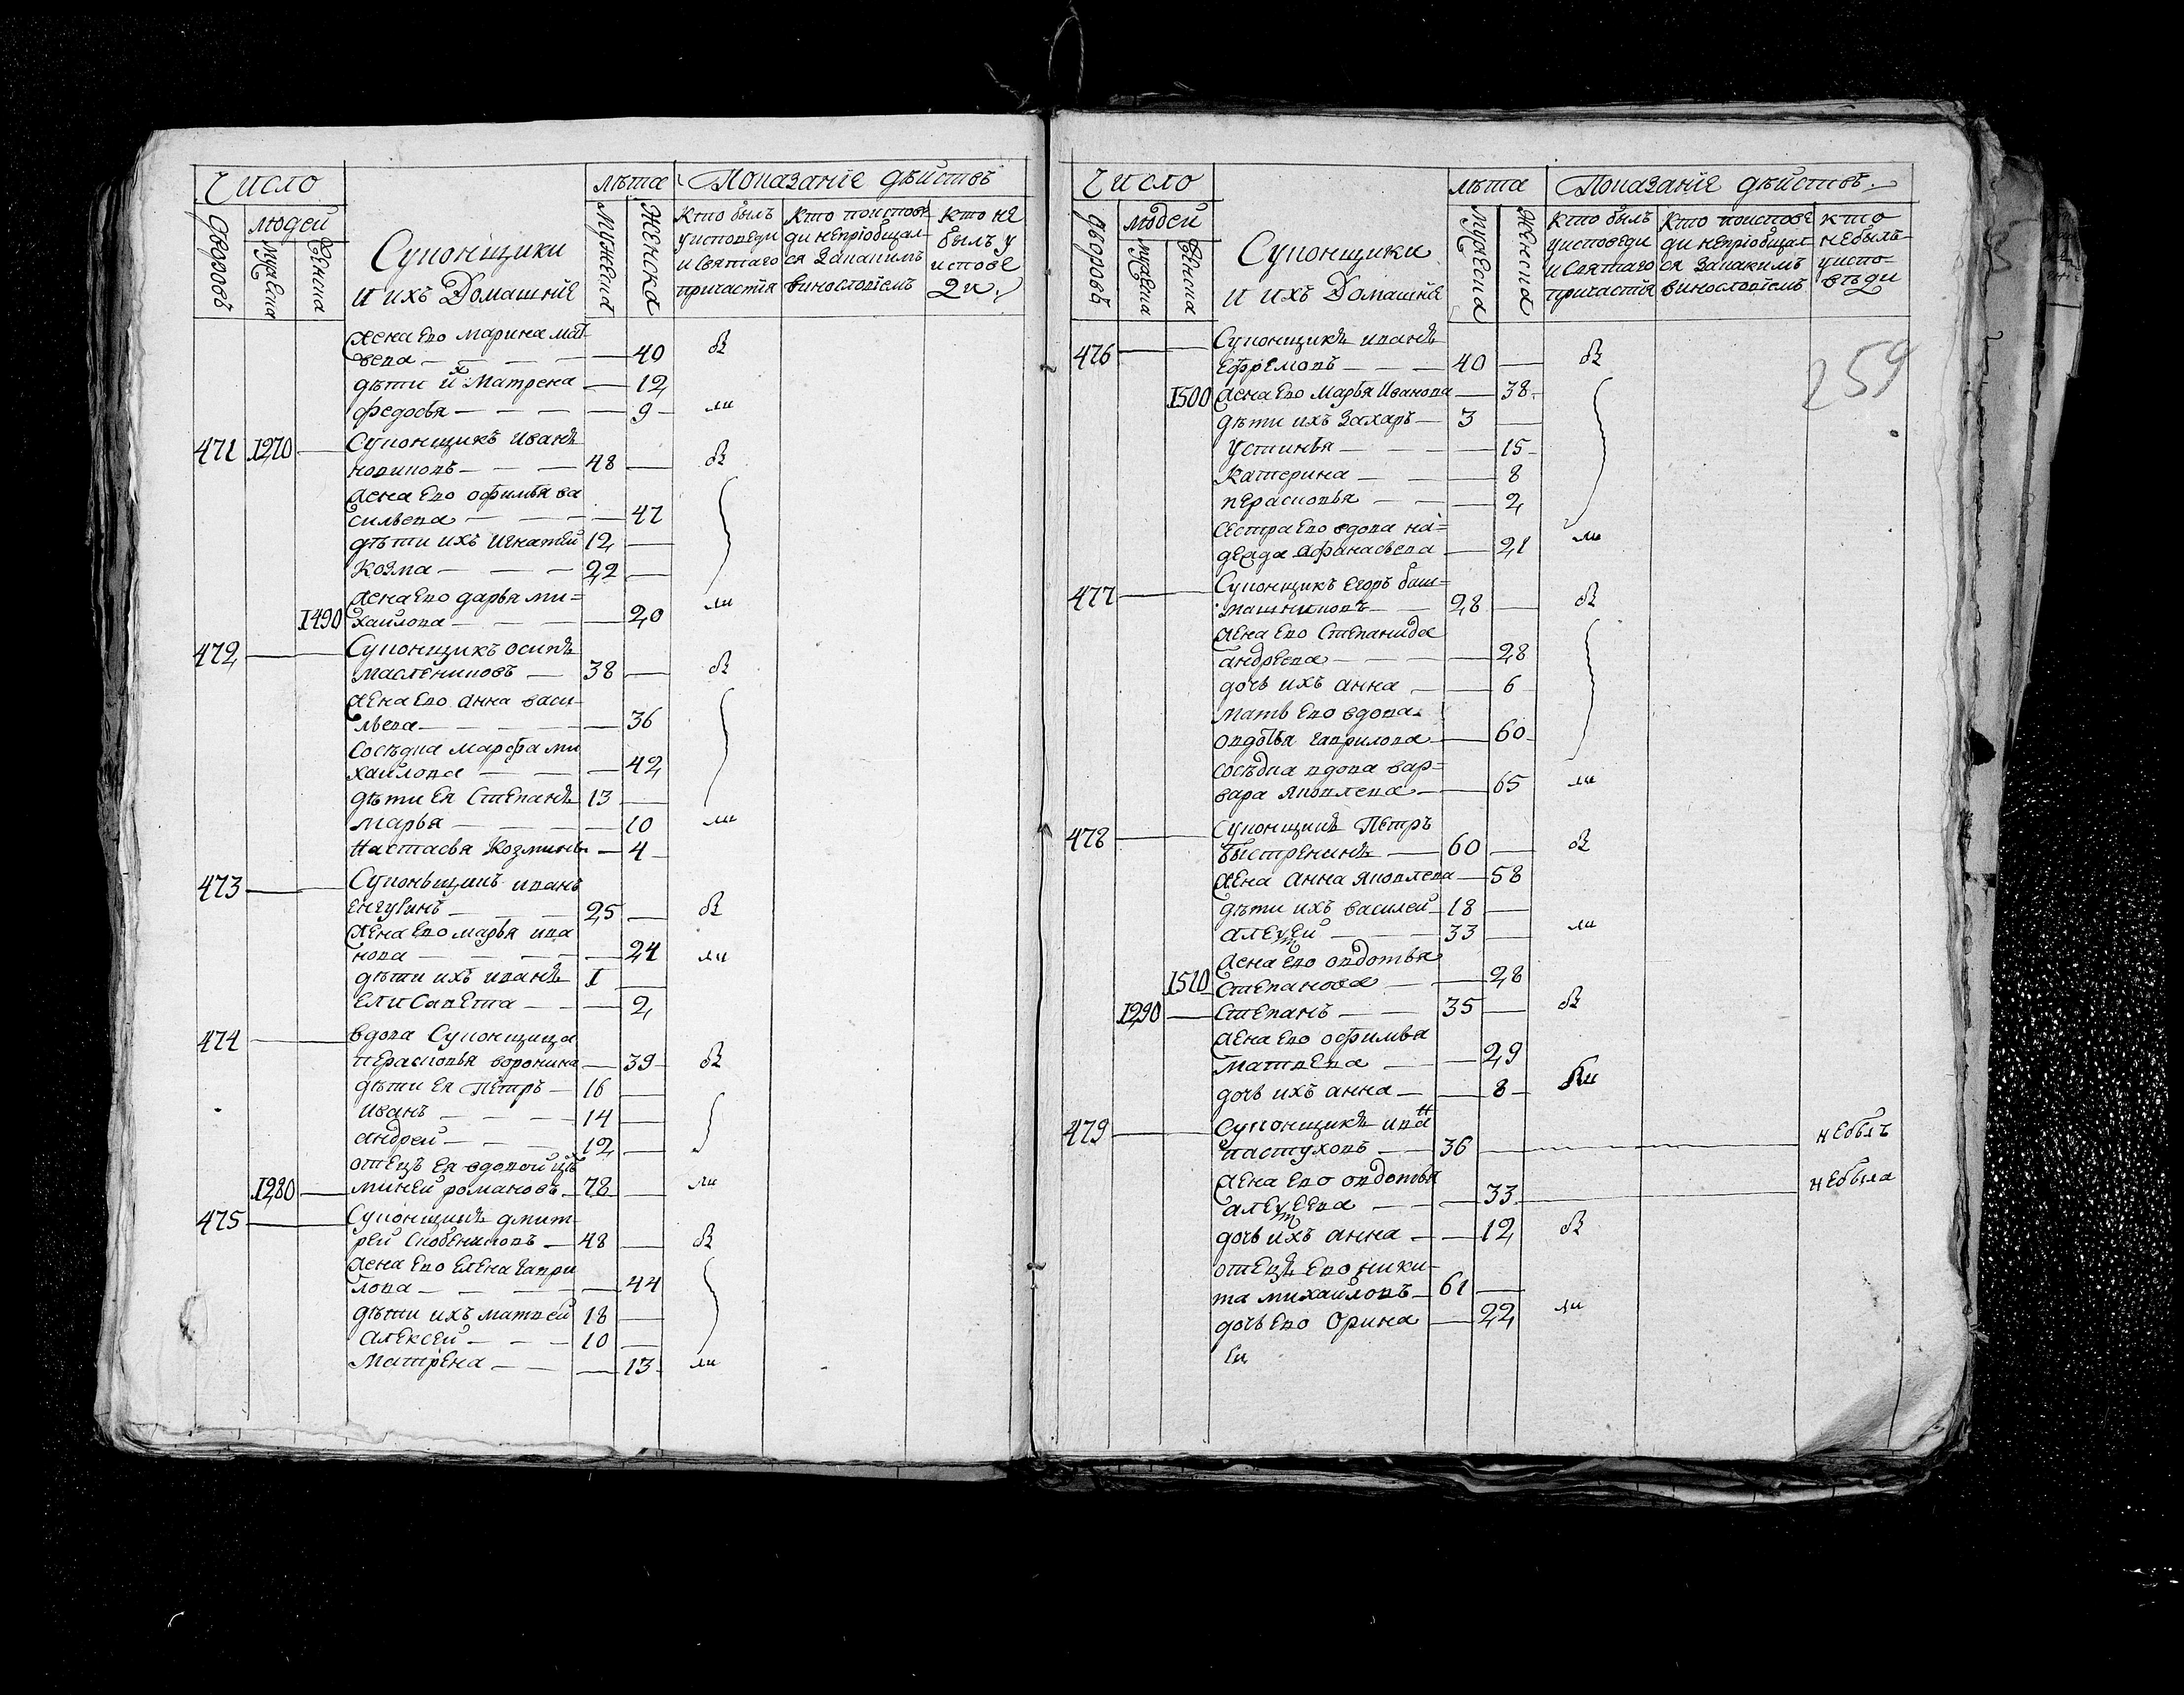 Число
лѣта
Показанїе дѣйствъ
дворовъ
людей
мужеска
женска
Суконщики
и ихъ домашнїе
Мужеска
Женска
Кто былъ
у исповеди
и святаго
причастїя
Кто поистове
ди непрїобщал
ся за какимъ
винословїемъ
Кто не
былъ у
испове
ди
жена ево марина мат
веева 40 был
дѣти ихъ Матрена 12
федосья 9 ли
471 1270 Суконщикъ иванъ
новиковъ 48 был
жена ево офимья ва
сильева 47
дѣти ихъ игнатей 12
Козма 22
жена ево дарья ми=
1490 хайлова 20 ли
472 Суконщикъ осипъ
маслениковъ 38 был
жена ево анна васи
льева 36
сосѣдка марфа ми
хайлова 42
дѣти ея Степанъ 13
марья 10 ли
настасья Козмины 4
473 Суконьщикъ иванъ
25 был
жена ево марья ива
нова 24 ли
дѣти ихъ иванъ 1
елисавета 2
474 вдова Суконщица
перасковья воронина 39 был
дѣти ея Петръ 16
иванъ 14
андрей 12
отецъ ея вдовой
1280 миней романовъ 78 ли
475 Суконщикъ дмит
рей скобениковъ 48 был
жена ево елена гаври
лова 44
дѣти ихъ матвей 18
алексей 10
Матрена 13 ли
Число
лѣта
Показанїе дѣйствъ
дворовъ
людей
мужеска
женска
Суконщики
и ихъ Домашнїе
Мужеска
Женска
Кто былъ
у исповеди
и Святаго
причастїя
Кто поистове
ди непрїобщал
ся за какимъ
винословїемъ
кто
небылъ
у испо-
вѣди
259
476 Суконщикъ иванъ
ефремовъ 40 был
1500 жена ево марья Иванова 38
дѣти ихъ Захаръ 3
Устинья 15
Катерина 8
перасковья 2
сестра ево вдова на=
дежда афанасьева 21 ли
477 Суконщикъ егоръ баш=
машниковъ 28 был
жена ево Степанида
андреева 28
дочь ихъ анна 6
мать ево вдова
овдотья гаврилова 60
сосѣдка вдова вар=
вара яковлева 65 ли
478 Суконщикъ Петръ
быстренинъ 60 был
жена анна яковлева 58
дѣти ихъ василей 18
алексей 33 ли
жена ево овдотья
1510 степанова 28
1290 степанъ 35 был
жена ево офимья
матвеева 29
дочь ихъ анна 8 были
479 Суконщикъ иванъ
пастуховъ 36 небылъ
жена ево овдотья
алексеева 33 небыла
дочь ихъ анна 12 был
отецъ ево ники-
та михайловъ 61
дочь ево Орина 22 ли